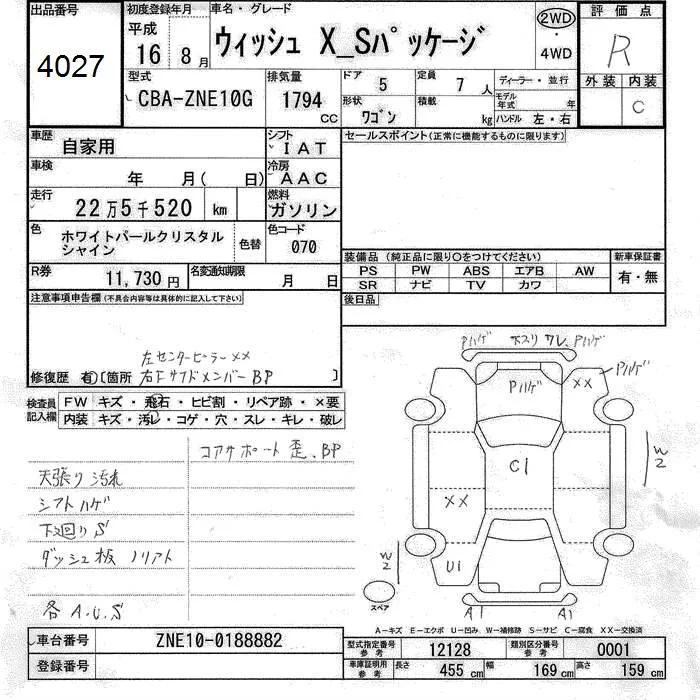 出品番号 初度登録年月 車名・グレード 2WD 評価点
4027 平成 16 8月 ウィッシュ X_Sパッケージ 4WD R
型式 排気量 ドア 5 定員 7人 ディーラー・並行 外装 内装
CBA-ZNE10G 1794 cc 形状 ワゴン 積載 kg モデル年式 年 ハンドル 左・右 C
車歴 自家用 シフト IAT セールスポイント(正常に機能するものに限ります)
車検 年 月( 日) 冷房 AAC
走行 22万5千520 km 燃料 ガソリン
色 ホワイトパールクリスタルシャイン 色替 色コード 070
装備品(純正品に限り○をつけてください) 新車保証書
R券 11,730円 名変通知期限 月 日 PS PW ABS エアB AW 有・無
SR ナビ TV カワ
注意事項申告欄(不具合内容等は具体的に記入して下さい) 後日品
左センターピラーXX
修復歴 有〔箇所 右Fサブドメンバー BP 〕
検査員記入欄 FW キズ・飛石・ヒビ割・リペア跡・×要
内装 キズ・汚レ・コゲ・穴・スレ・キレ・破レ
コアサポート歪、BP
天張り汚れ
シフトハゲ
下廻りS
ダッシュ板 ノリアト
各A.U.S
Pハゲ 下スリ ワレ、Pハゲ
Pハゲ XX Pハゲ
C1 W2
XX
W2 U1
スペア A1 A1
A-キズ E-エクボ U-凹み W-補修跡 S-サビ C-腐食 XX-交換済
車台番号 ZNE10-0188882 型式指定番号 参考 12128 類別区分番号 参考 0001
登録番号 車庫証明用 参考 長さ 455cm 幅 169cm 高さ 159cm